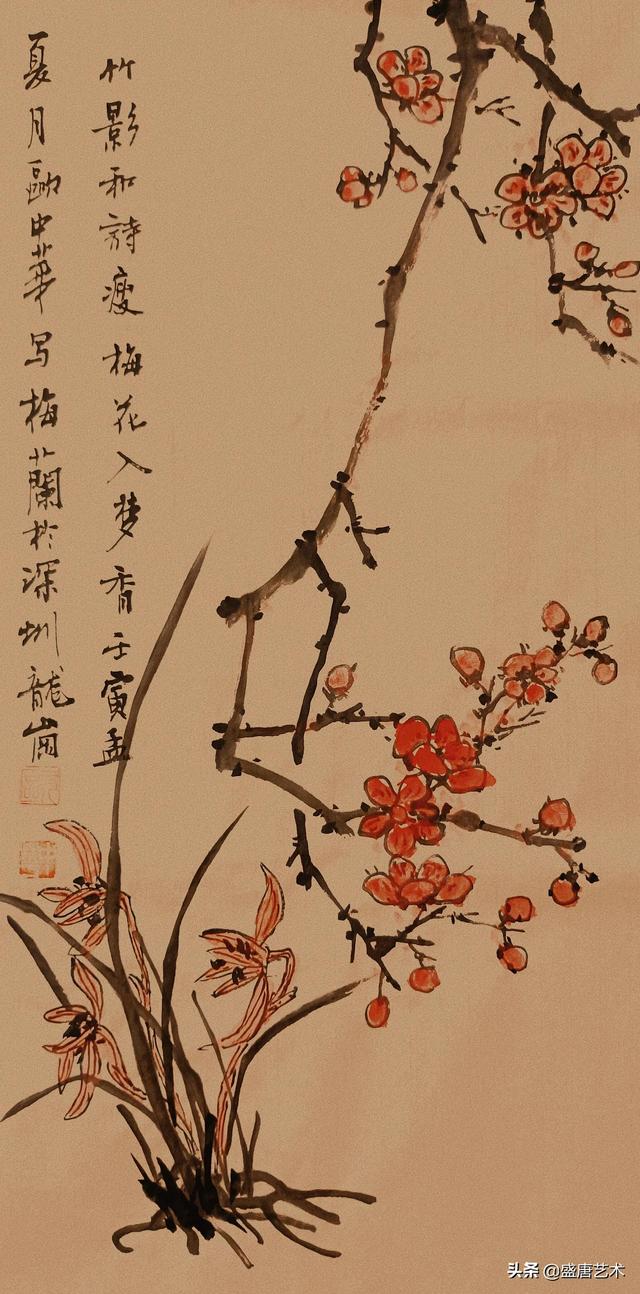 竹影和詩瘦梅花入梦香壬寅孟
夏月歐中華写梅蘭於深圳龍崗
头条 @盛唐艺术